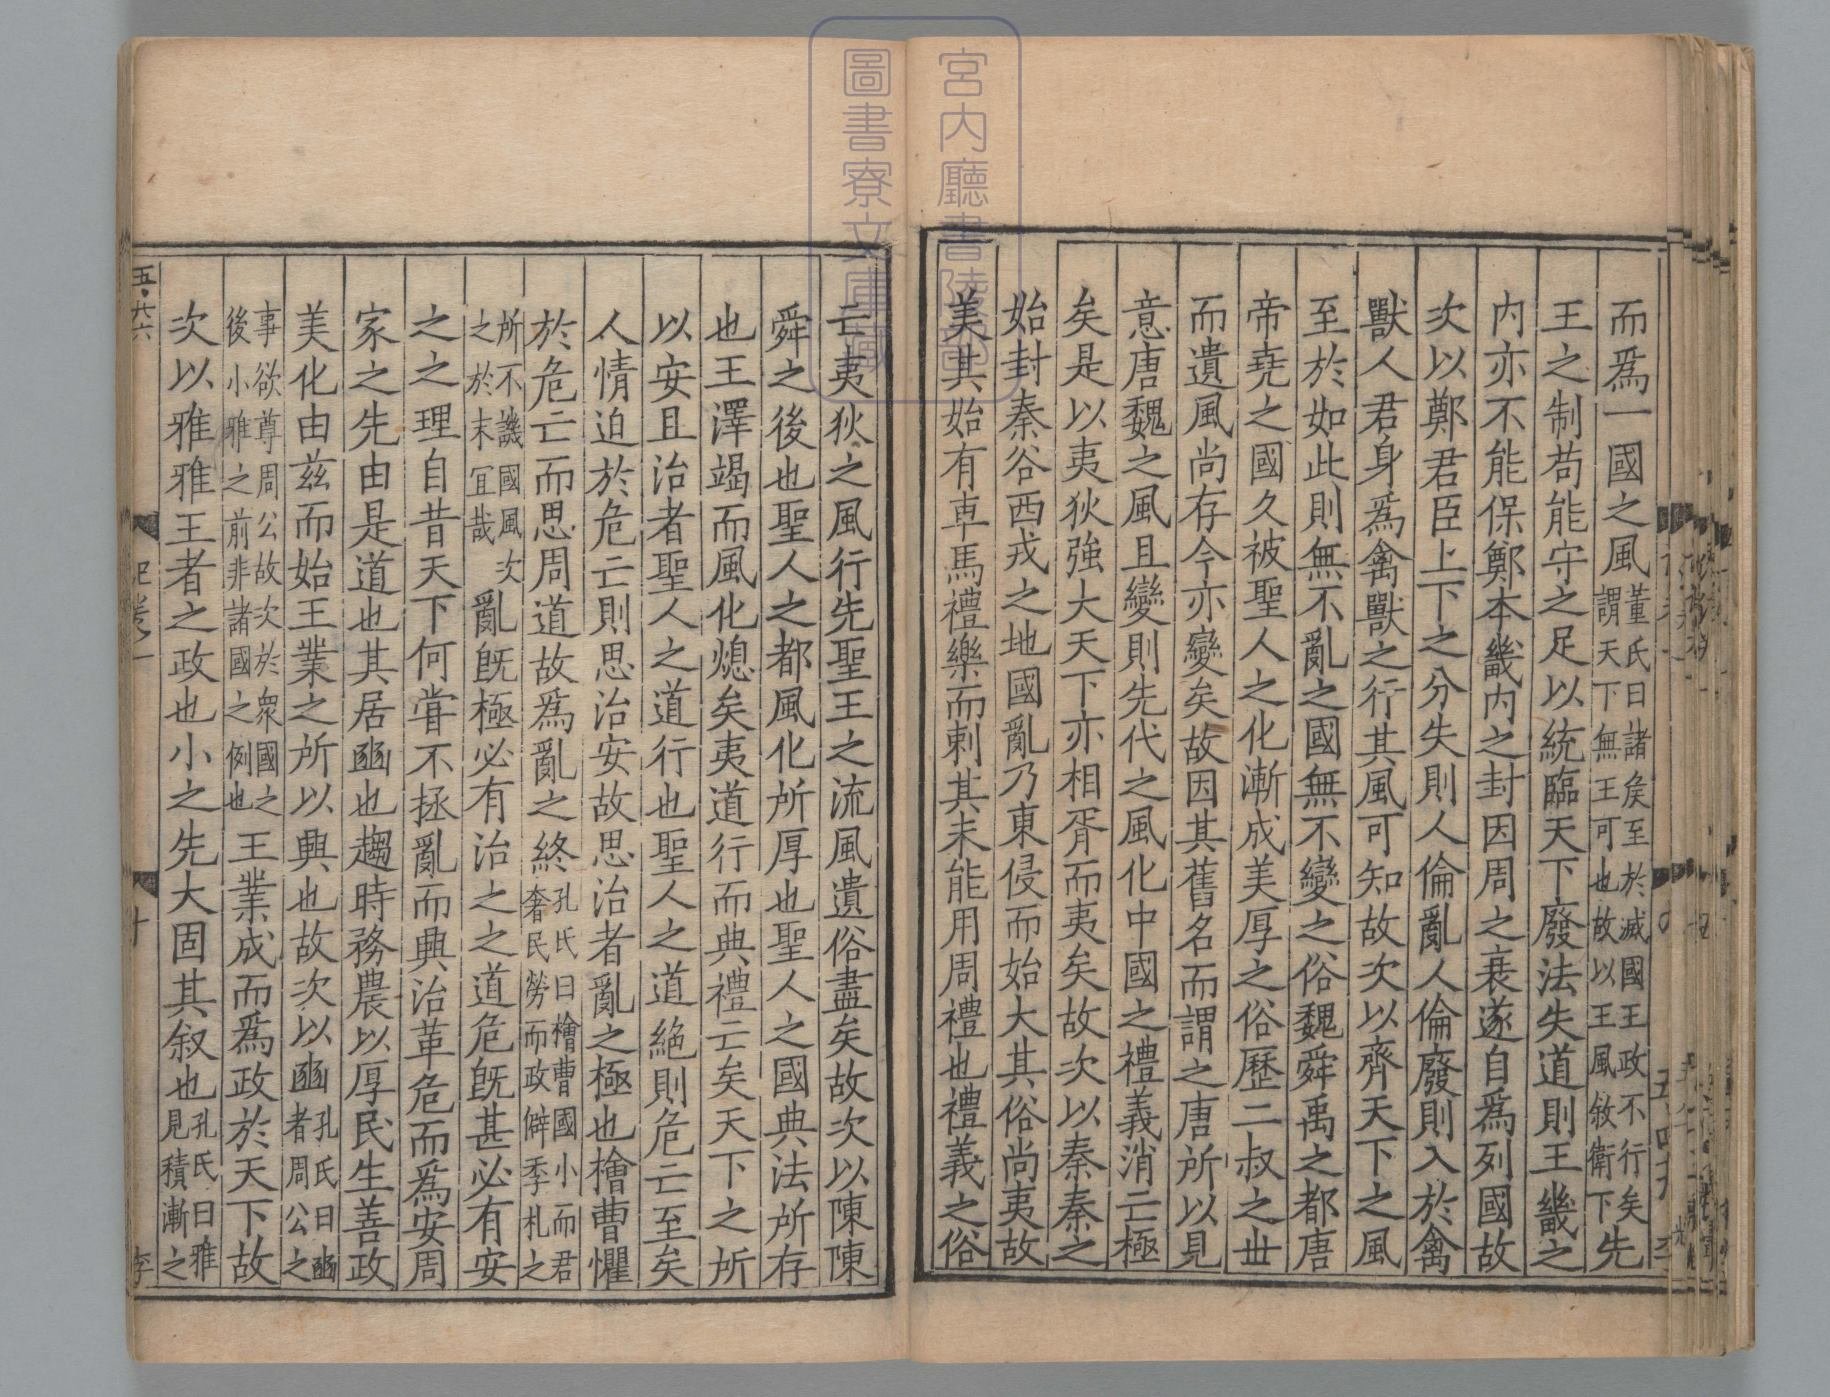 而爲一國之風董氏曰諸侯至於滅國王政不行矣謂天下無王可也故以王風敘衛下先
王之制苟能守之足以統臨天下廢法失道則王畿之
内亦不能保鄭本畿内之封因周之衰遂自爲列國故
次以鄭君臣上下之分失則人倫亂人倫廢則入於禽
獸人君身爲禽獸之行其風可知故次以齊天下之風
至於如此則無不亂之國無不變之俗魏舜禹之都唐
帝堯之國久被聖人之化漸成美厚之俗歷二叔之世
而遺風尚存今亦變矣故因其舊名而謂之唐所以見
意唐魏之風且變則先代之風化中國之禮義消亡極
矣是以夷狄強大天下亦相胥而夷矣故次以秦秦之
始封秦谷西戎之地國亂乃東侵而始大其俗尚夷故
美其始有車馬禮樂而刺其未能用周禮也禮義之俗
亡夷狄之風行先聖王之流風遺俗盡矣故次以陳陳
舜之後也聖人之都風化所厚也聖人之國典法所存
也王澤竭而風化熄矣夷道行而典禮亡矣天下之所
以安且治者聖人之道行也聖人之道絕則危亡至矣
人情迫於危亡則思治安故思治者亂之極也檜曹懼
於危亡而思周道故爲亂之終孔氏曰檜曹國小而君奢民勞而政僻季札之
所不譏國風次之於末宜哉亂旣極必有治之之道危旣甚必有安
之之理自昔天下何甞不拯亂而興治革危而爲安周
家之先由是道也其居豳也趨時務農以厚民生善政
美化由兹而始王業之所以興也故次以豳孔氏曰豳者周公之
事欲尊周公故次於衆國之後小雅之前非諸國之例也王業成而爲政於天下故
次以雅雅王者之政也小之先大固其叙也孔氏曰雅見積漸之
五·六六
巳卷一
十
李
宮内廳書陵部
圖書寮文庫藏